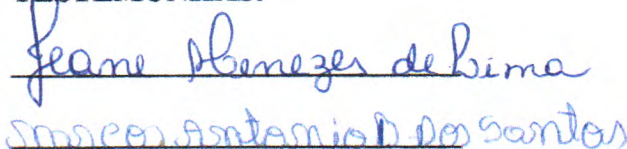 Jeane Menezes de Lima
Marcos Antonio D Dos Santos